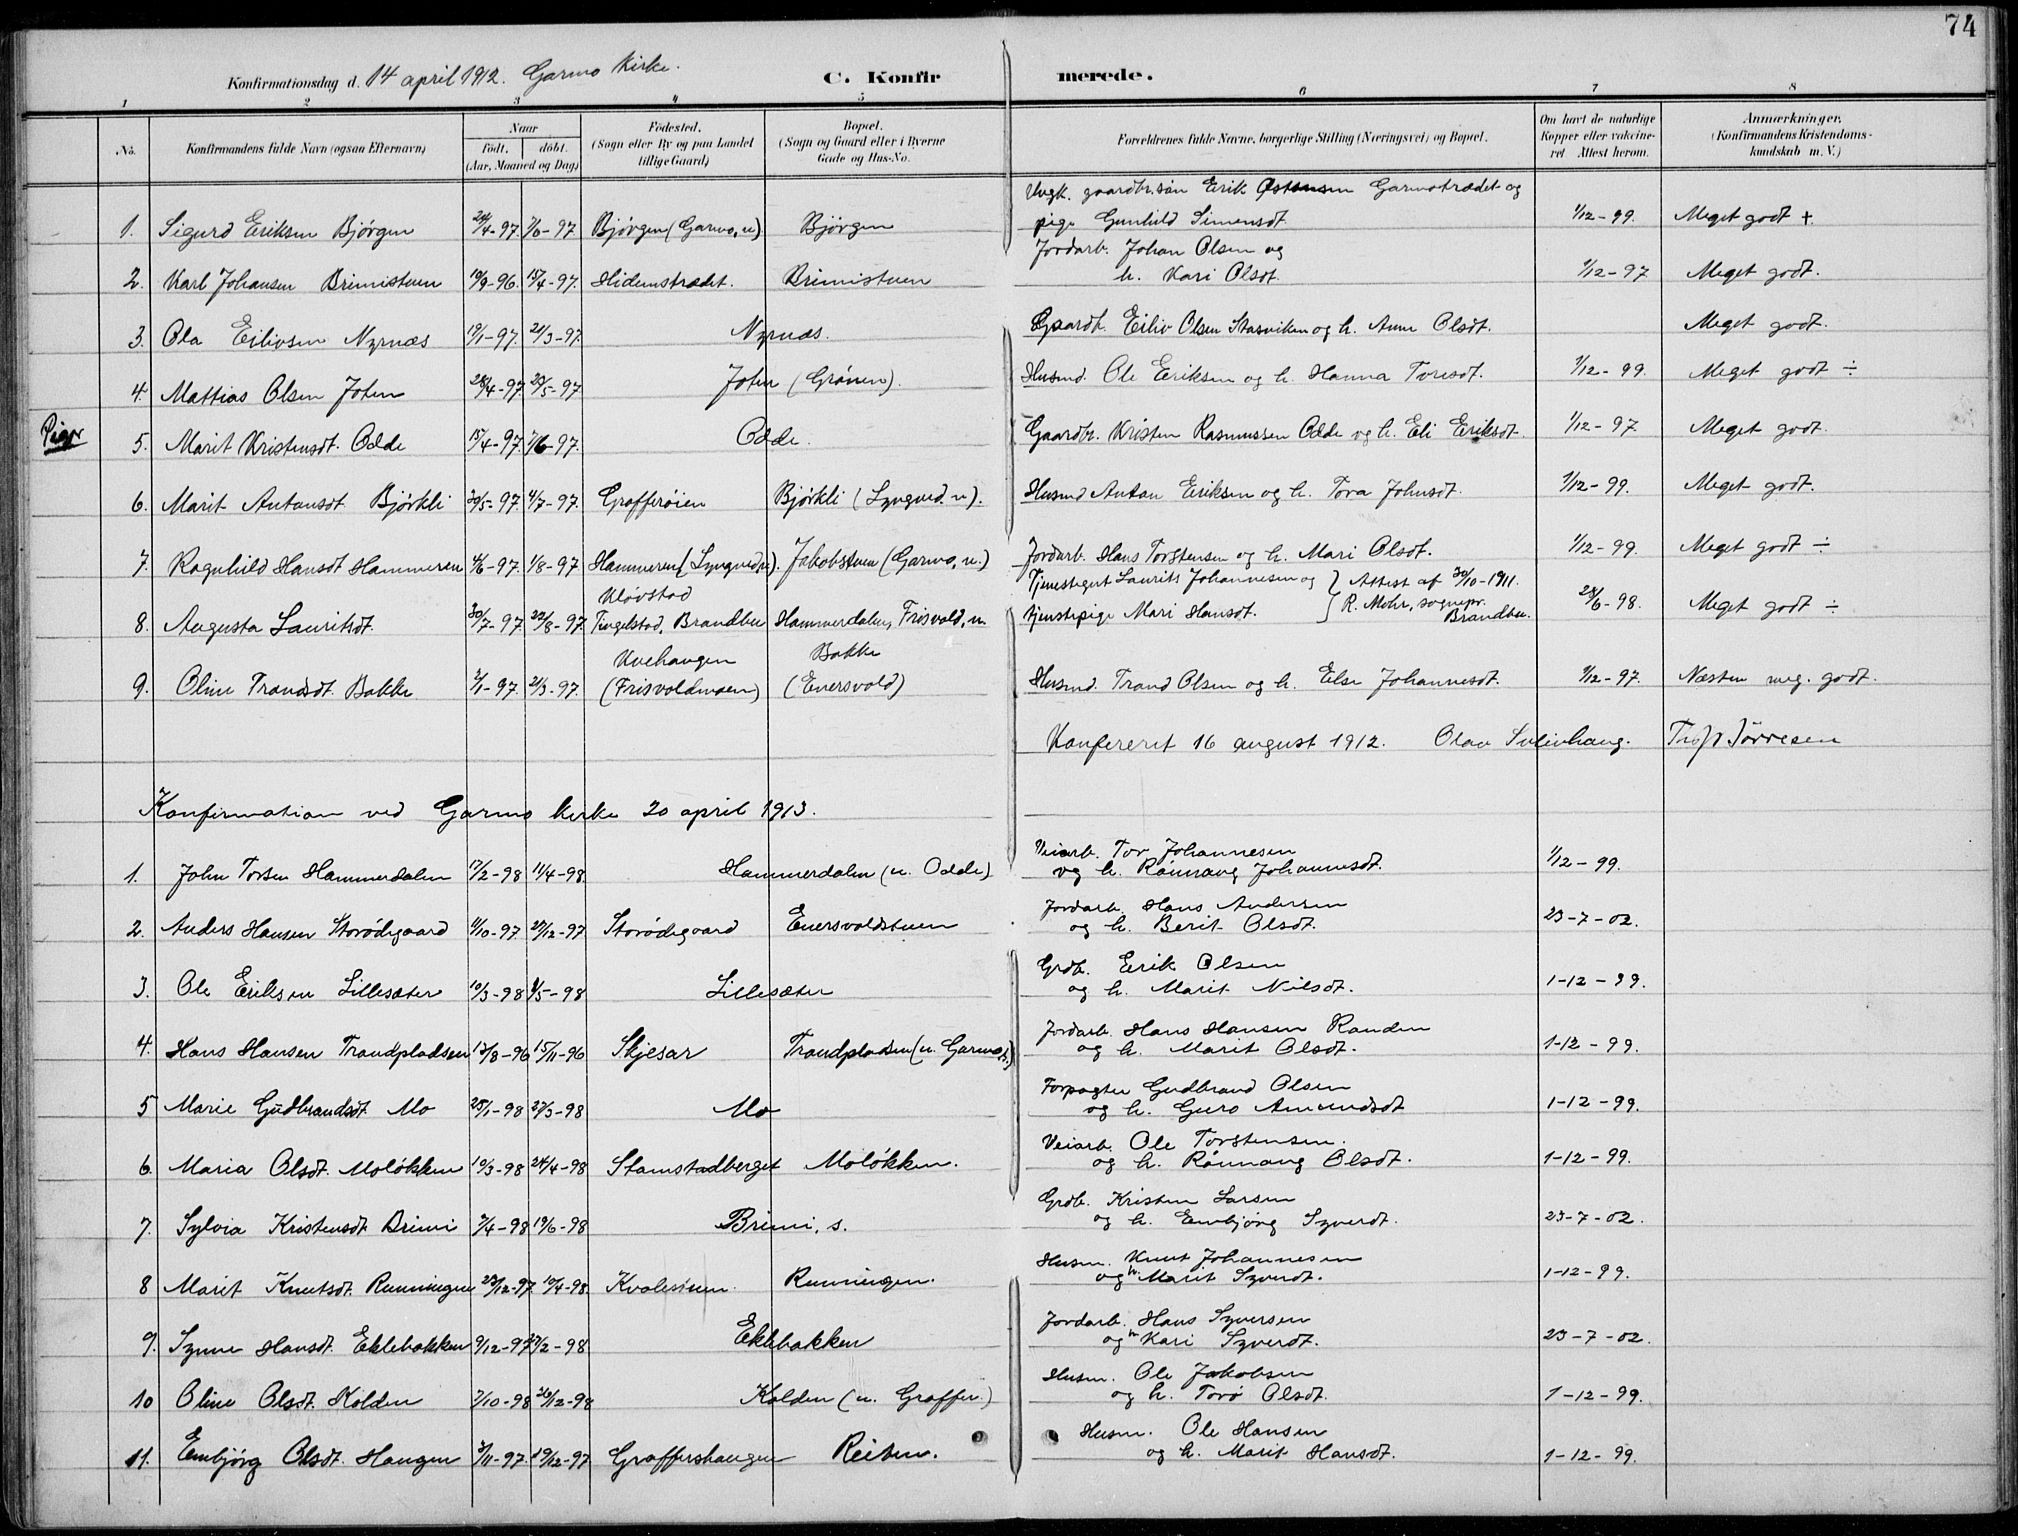 74
Konfirmationsdag d. 14 april 1912. Garmo kirke.
C. Konfirmerede.
1 2 3 4 5 6 7 8
No. Konfirmandens fulde Navn (ogsaa Efternavn) Naar født. døbt. (Aar, Maaned og Dag) Fødested. (Sogn eller By og paa Landet tillige Gaard) Bopæl. (Sogn og Gaard eller i Byerne Gade og Hus-No. Forældrenes fulde Navne, borgerlige Stilling (Næringsvei) og Bopæl. Om havt de naturlige Kopper eller vakcineret Attest herom. Anmærkninger. (Konfirmandens Kristendomskundskab m. V.)
Ungk. gaardbr.søn Erik Østensen Garmotrædet og
1. Sigurd Eriksen Bjørgen 24/4-97. 7/6-97 Bjørgen (Garmo, n) Bjørgen pige Gunhild Simensdt. 1/12-99. Meget godt +
Jordarb. Johan Olsen og
2. Karl Johansen Brimistuen 19/9-96. 15/4-97. Hidemstrædet. Brimistuen h. Kari Olsdt. 1/12-97 Meget godt.
3. Ola Eilivsen Nyrnæs 19/1-97. 21/3-97. Nyrnæs. Gaardb. Eiliv Olsen Stasviken og h. Anne Olsdt. Meget godt.
4. Mattias Olsen Joten 28/4-97. 29/5-97 Joten (Grønen). Husmd. Ole Eriksen og h. Hanna Toresdt. 1/12-99. Meget godt ÷
Piger
5. Marit Kristensdt. Odde 15/4-97. 7/6-97. Odde. Gaardbr. Kristen Rasmussen Odde og h. Eli Eriksdt. 1/12-97. Meget godt.
6. Marit Antonsdt. Bjørkli 30/5-97. 4/7-97. Grofferøien Bjørkli (Lyngved. n). Husmd Anton Eriksen og h. Tora Johnsdt. 1/12-99. Meget godt.
7. Ragnhild Hansdt Hammeren 4/6-97. 1/8-97 Hammeren (Lyngved, n). Jakobstuen (Garmo, n.) Jordarb. Hans Torstensen og h. Mari Olsdt. 1/12-99. Meget godt ÷
Kløvstad Tjenestegut Laurits Johannesen og } Attest af 30/10-1911.
8. Augusta Lauritsdt. 30/7-97. 22/8-97. Tingelstad, Brandbu Hammerdalen, Frisvold, n. tjenestepige Mari Hansdt. } R. Mohr, sognepr. Brandbu. 28/6-98. Meget godt ÷
Kvehaugen Bakke
9. Oline Trandsdt. Bakke 2/1-97. 21/3-97. (Frisvoldmoen) (Enersvold) Husmd. Trand Olsen og h. Else Johannesdt. 1/12-97. Næsten meg. godt.
Konfereret 16 august 1912. Olav Sulinhaug.
Konfirmation ved Garmo kirke 20 april 1913.
Veiarb. Tor Johannesen
1. John Torsen Hammerdalen 17/2-98 11/4-98 Hammerdalen (n. Odde) og h. Rønnaug Johannesdt. 1/12-99.
Jordarb. Hans Andersen
2. Anders Hansen Storødegaard 11/10-97 27/12-97 Storødegaard Enersvoldstuen og h. Berit Olsdt. 23-7-02.
Grdb. Erik Olsen
3. Ole Eriksen Lillesæter 10/3-98 8/5-98 Lillesæter og h. Marit Nilsdt. 1-12-99.
Jordarb. Hans Hansen Randen
4. Hans Hansen Trandpladsen 17/8-96 15/11-96 Skjesar Trandpladsen (n. Garmo) og h. Marit Olsdt. 1-12-99.
Forpagter Gudbrand Olsen
5 Marie Gudbrandsdt. Mo 25/1-98 27/3-98 Mo og h. Guro Amundsdt 1-12-99.
Veiarb. Ole Torstensen.
6. Maria Olsdt. Moløkken 10/3-98 24/4-98 Stamstadberget Moløkken. og h. Rønnaug Olsdt. 1-12-99.
Grdb. Kristen Larsen
7. Sylvia Kristensdt. Brimi 7/4-98 19/6-98 Brimi, s. og h. Embjørg Syverdt. 23-7-02.
Husm. Knut Johannesen
8 Marit Knutsdt. Runningen 23/12-97 10/4-98. Kvalestuen. Runningen. og h. Marit Syverdt. 1-12-99.
Jordarb. Hans Syversen
9. Synne Hansdt. Eklebakken 9/12-97 27/2-98 Eklebakken og h. Kari Syverdt. 23-7-02.
Husm. Ole Jakobsen
10 Oline Olsdt. Kolden 7/10-98 26/12-98 Kolden (n. Groffer.) og h. Torø Olsdt. 1-12-99.
Husm. Ole Hansen
11. Embjørg Olsdt. Haugen 3/11-97. 19/12-97 Groffershaugen Reiten. og h. Marit Hansdt. 1-12-99.